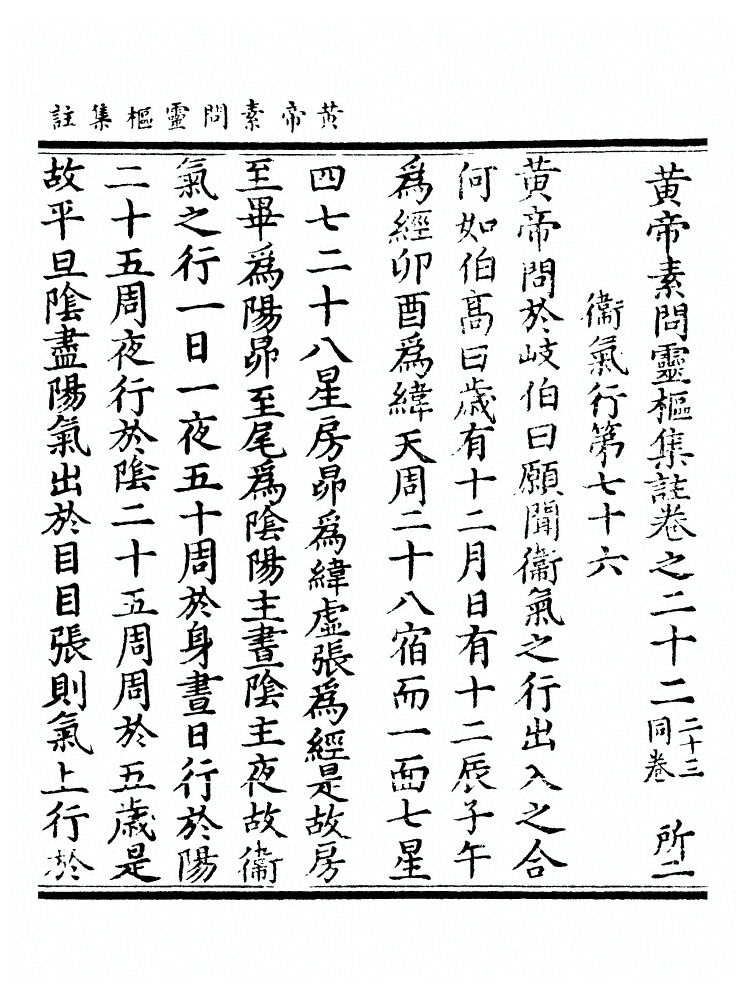 黃帝素問靈樞集註
黃帝素問靈樞集註卷之二十二 二十三同卷 所二
衞氣行第七十六
黃帝問於岐伯曰願聞衞氣之行出入之合
何如伯高曰歲有十二月日有十二辰子午
爲經卯酉爲緯天周二十八宿而一面七星
四七二十八星房昴爲緯虛張爲經是故房
至畢爲陽昴至尾爲陰陽主晝陰主夜故衞
氣之行一日一夜五十周於身晝日行於陽
二十五周夜行於陰二十五周周於五歲是
故平旦陰盡陽氣出於目目張則氣上行於